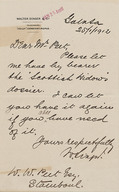 Galata
25/1/1912
Dear Mr Peet,
Please let
me have by bearer
the Scottish Widow's
dossier. I can let
you have it again
if you have need
of it.
Yours respectfully
W. W. Peet Esq.
Stamboul.